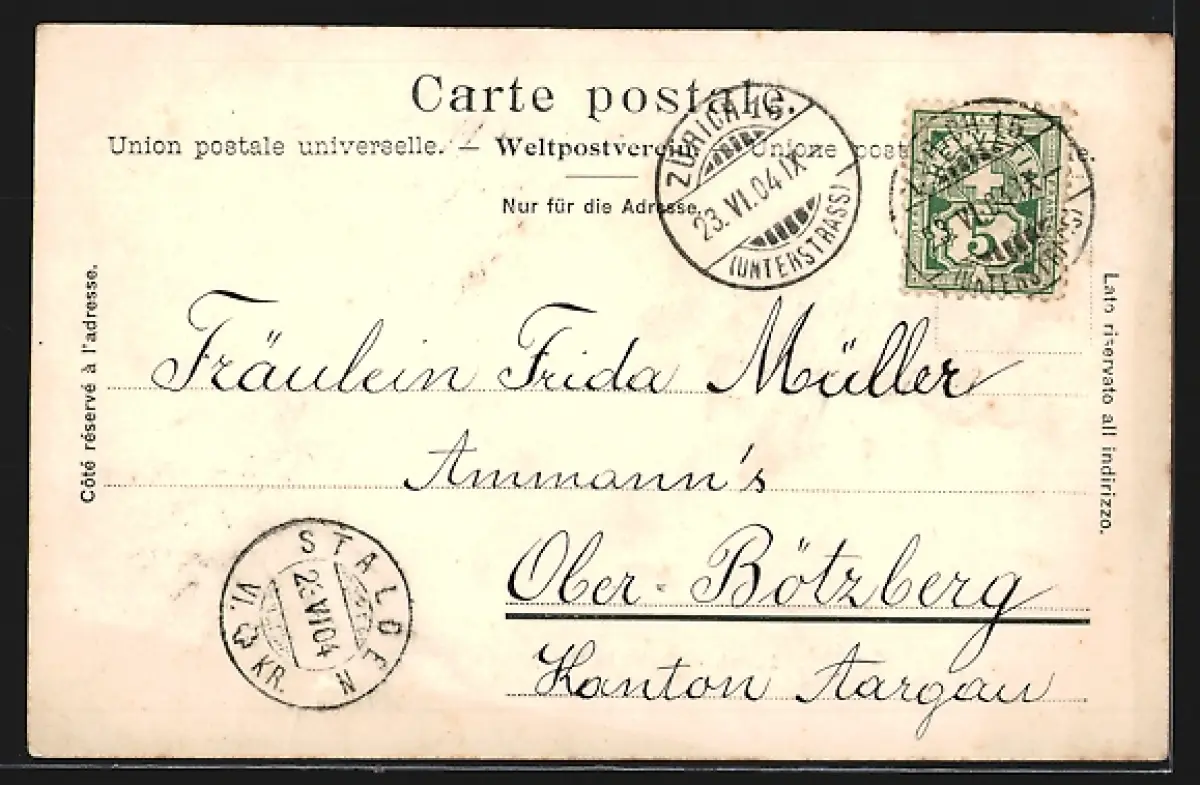 Carte postale.
Union postale universelle. — Weltpostverein — Unione post
Nur für die Adresse.
ZÜRICH 15
23. VI. 04 IX
(UNTERSTRASS)
HELVETIA
5
(UNTERSTRASS)
Côté réservé à l'adresse.
Lato riservato all indirizzo.
Fräulein Frida Müller
Ammann's
Ober-Bötzberg
Kanton Aargau
STALDEN
23 VI 04
VI. KR.